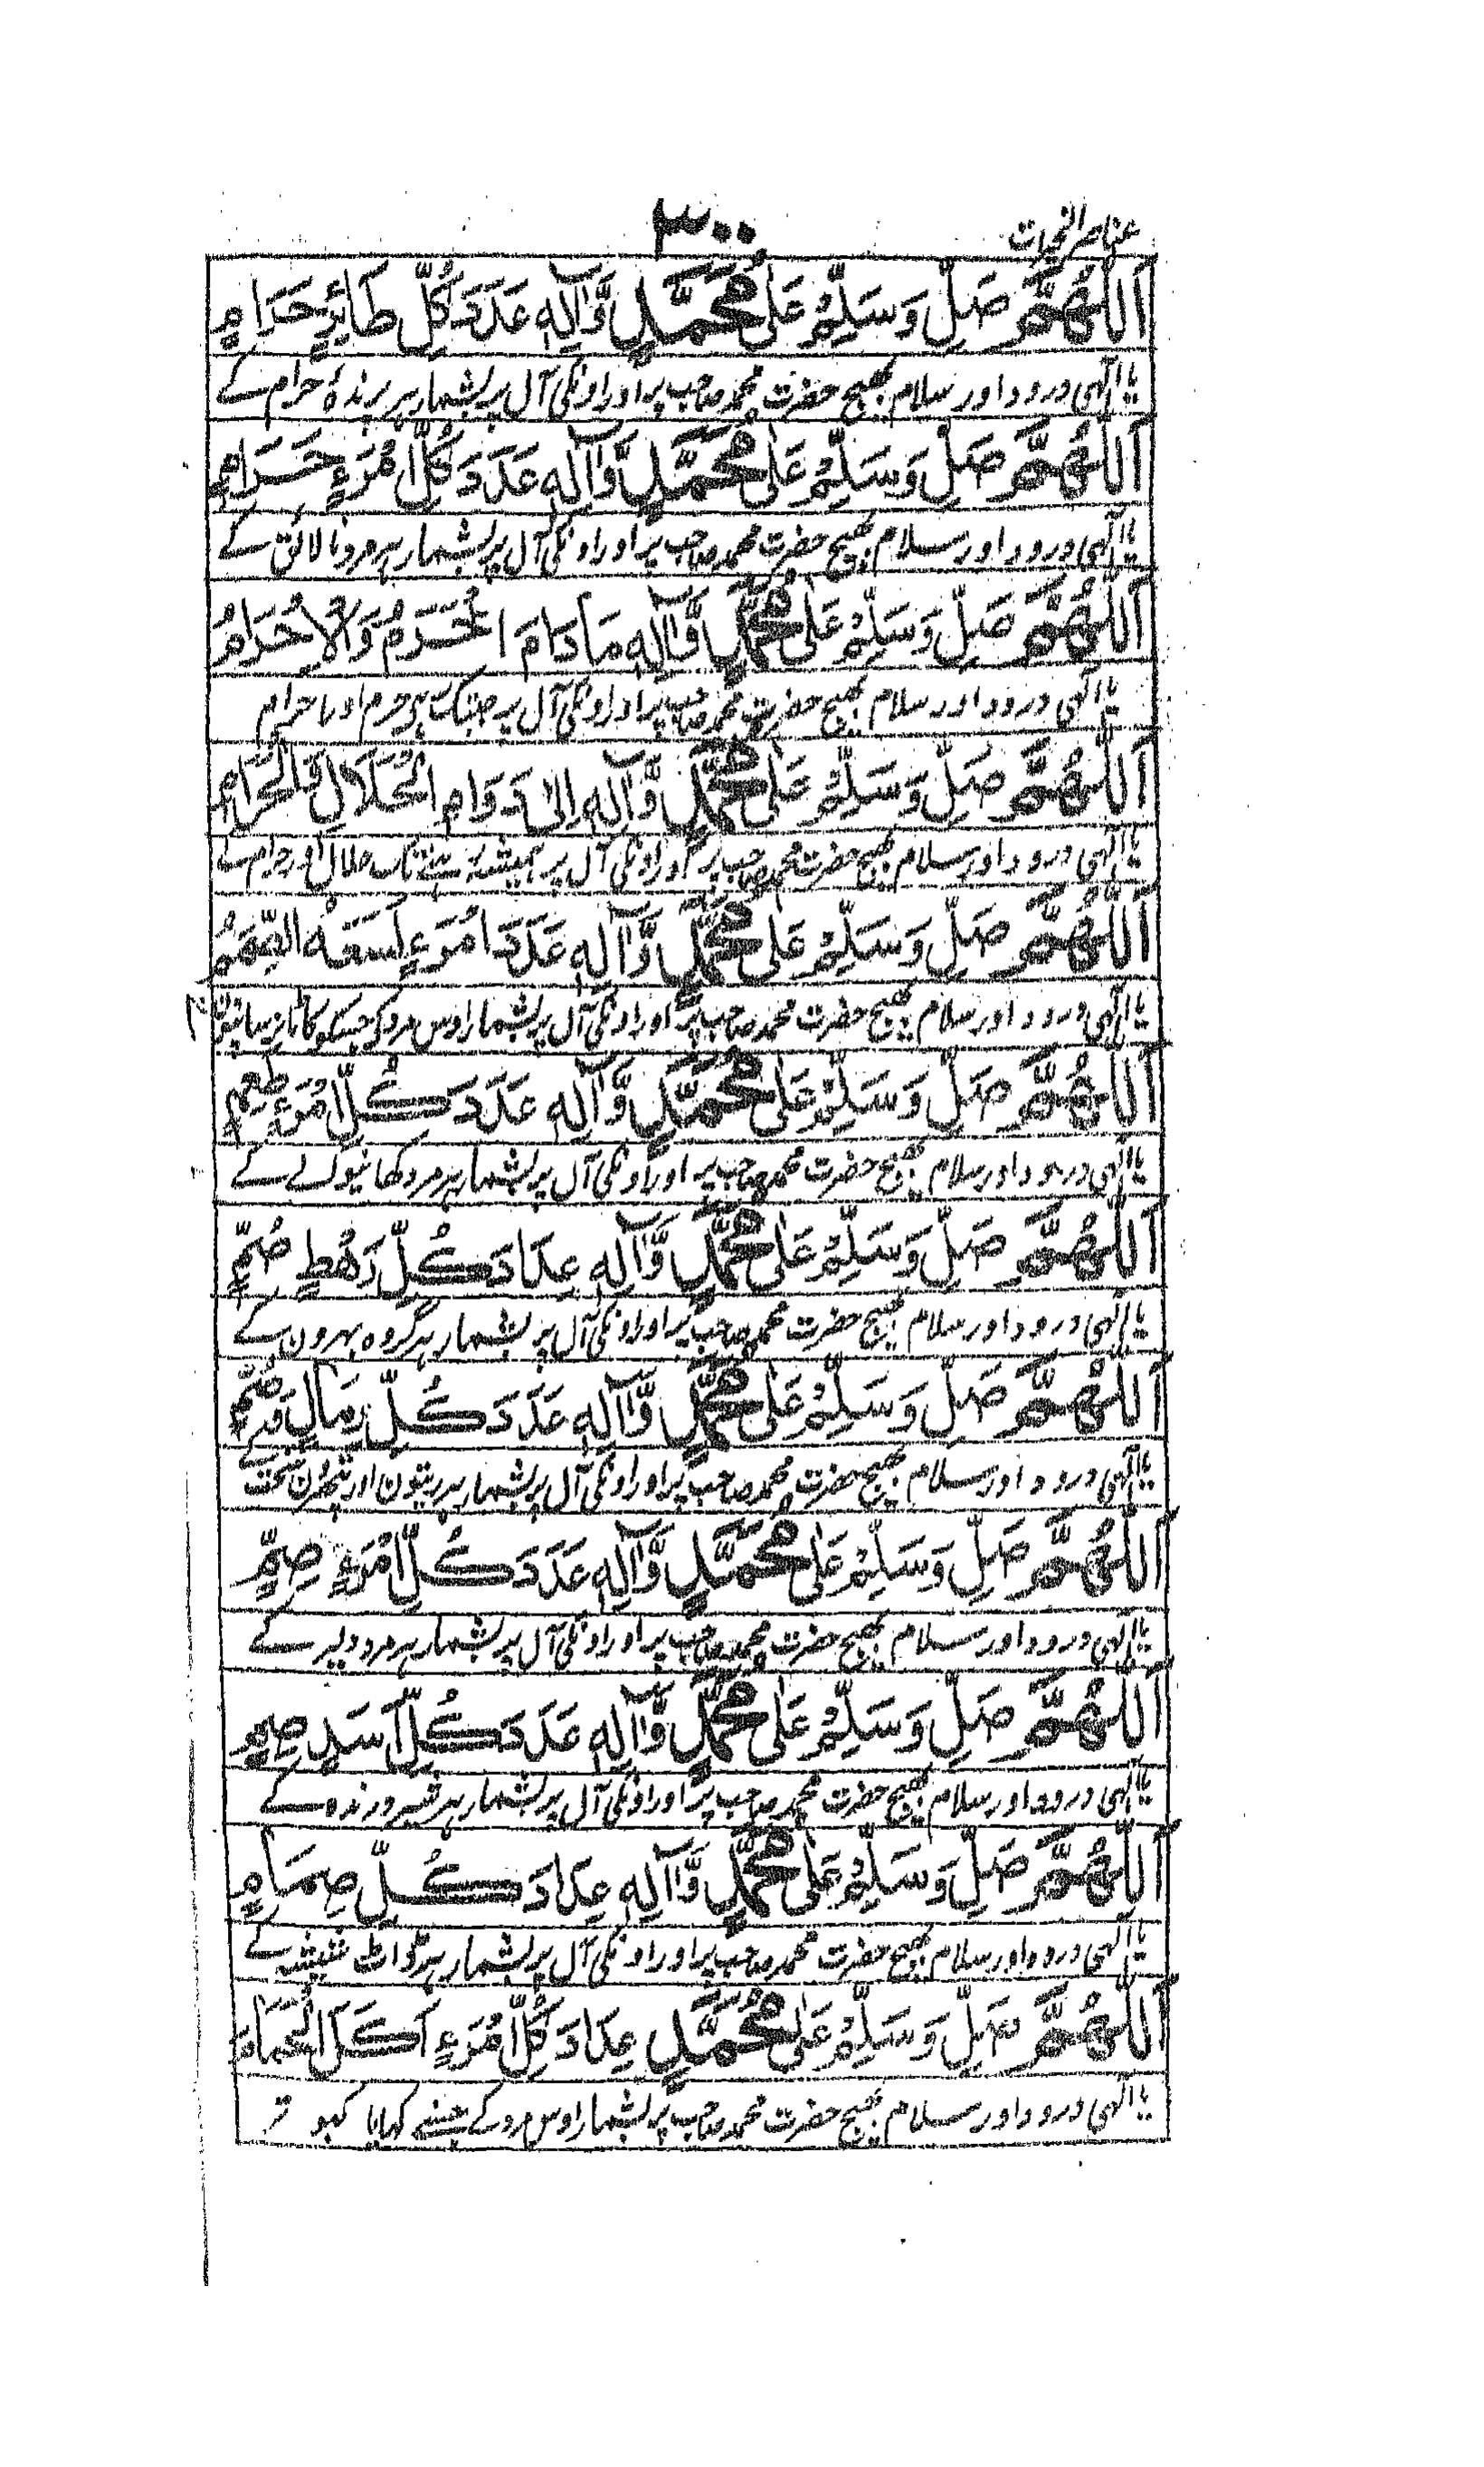 عناصر الخیرات
۳۰۰
اَللّٰهُمَّ صَلِّ وَسَلِّمْ عَلٰى مُحَمَّدٍ وَّاٰلِهٖ عَدَدَ كُلِّ طَائِرٍ حَرَامٍ
یا الٰہی درود اور سلام بھیج حضرت محمد صاحب پر اور اونکی آل پر بشمار ہر پرندۂ حرام کے
اَللّٰهُمَّ صَلِّ وَسَلِّمْ عَلٰى مُحَمَّدٍ وَّاٰلِهٖ عَدَدَ كُلِّ امْرَءٍ حَرَامٍ
یا الٰہی درود اور سلام بھیج حضرت محمد صاحب پر اور اونکی آل پر بشمار ہر مرد نالائق کے
اَللّٰهُمَّ صَلِّ وَسَلِّمْ عَلٰى مُحَمَّدٍ وَّاٰلِهٖ مَا دَامَ الْحَرَمُ وَالْاِحْرَامُ
یا الٰہی درود اور سلام بھیج حضرت محمد صاحب پر اور اونکی آل پر جبتک ہی حرم اور احرام
اَللّٰهُمَّ صَلِّ وَسَلِّمْ عَلٰى مُحَمَّدٍ وَّاٰلِهٖ اِلٰى دَوَامِ الْحَلَالِ وَالْحَرَامِ
یا الٰہی درود اور سلام بھیج حضرت محمد صاحب پر اور اونکی آل پر ہمیشہ رہنے تک حلال اور حرام کے
اَللّٰهُمَّ صَلِّ وَسَلِّمْ عَلٰى مُحَمَّدٍ وَّاٰلِهٖ عَدَدَ امْرَءٍ لَسَعَهُ الصِّمَمُ
یا الٰہی درود اور سلام بھیج حضرت محمد صاحب پر اور اونکی آل پر بشمار اوس مرد کی جسکو کاٹا نر سانپوں
اَللّٰهُمَّ صَلِّ وَسَلِّمْ عَلٰى مُحَمَّدٍ وَّاٰلِهٖ عَدَدَ كُلِّ امْرَءٍ طَعِمٍ
یا الٰہی درود اور سلام بھیج حضرت محمد صاحب پر اور اونکی آل پر بشمار ہر مرد کھانیوالے کے
اَللّٰهُمَّ صَلِّ وَسَلِّمْ عَلٰى مُحَمَّدٍ وَّاٰلِهٖ عِدَادَ كُلِّ رَهْطٍ صُمٍّ
یا الٰہی درود اور سلام بھیج حضرت محمد صاحب پر اور اونکی آل پر بشمار ہر گروہ بہرون کے
اَللّٰهُمَّ صَلِّ وَسَلِّمْ عَلٰى مُحَمَّدٍ وَّاٰلِهٖ عَدَدَ كُلِّ رِمَالٍ وَصُمٍّ
یا الٰہی درود اور سلام بھیج حضرت محمد صاحب پر اور اونکی آل پر بشمار ہر ریتون اور پتھرون سخت کے
اَللّٰهُمَّ صَلِّ وَسَلِّمْ عَلٰى مُحَمَّدٍ وَّاٰلِهٖ عَدَدَ كُلِّ امْرَءٍ صِمٍّ
یا الٰہی درود اور سلام بھیج حضرت محمد صاحب پر اور اونکی آل پر بشمار ہر مرد دلیر کے
اَللّٰهُمَّ صَلِّ وَسَلِّمْ عَلٰى مُحَمَّدٍ وَّاٰلِهٖ عَدَدَ كُلِّ اَسَدٍ صِمٍّ
یا الٰہی درود اور سلام بھیج حضرت محمد صاحب پر اور اونکی آل پر بشمار ہر شیر درندہ کے
اَللّٰهُمَّ صَلِّ وَسَلِّمْ عَلٰى مُحَمَّدٍ وَّاٰلِهٖ عِدَادَ كُلِّ صِمَامٍ
یا الٰہی درود اور سلام بھیج حضرت محمد صاحب پر اور اونکی آل پر بشمار ہر ڈواٹ شیشہ کے
اَللّٰهُمَّ صَلِّ وَسَلِّمْ عَلٰى مُحَمَّدٍ عِدَادَ كُلِّ امْرَءٍ اَكَلَ الْحَمَامَ
یا الٰہی درود اور سلام بھیج حضرت محمد صاحب پر بشمار اوس مرد کے جسنے کہایا کبوتر